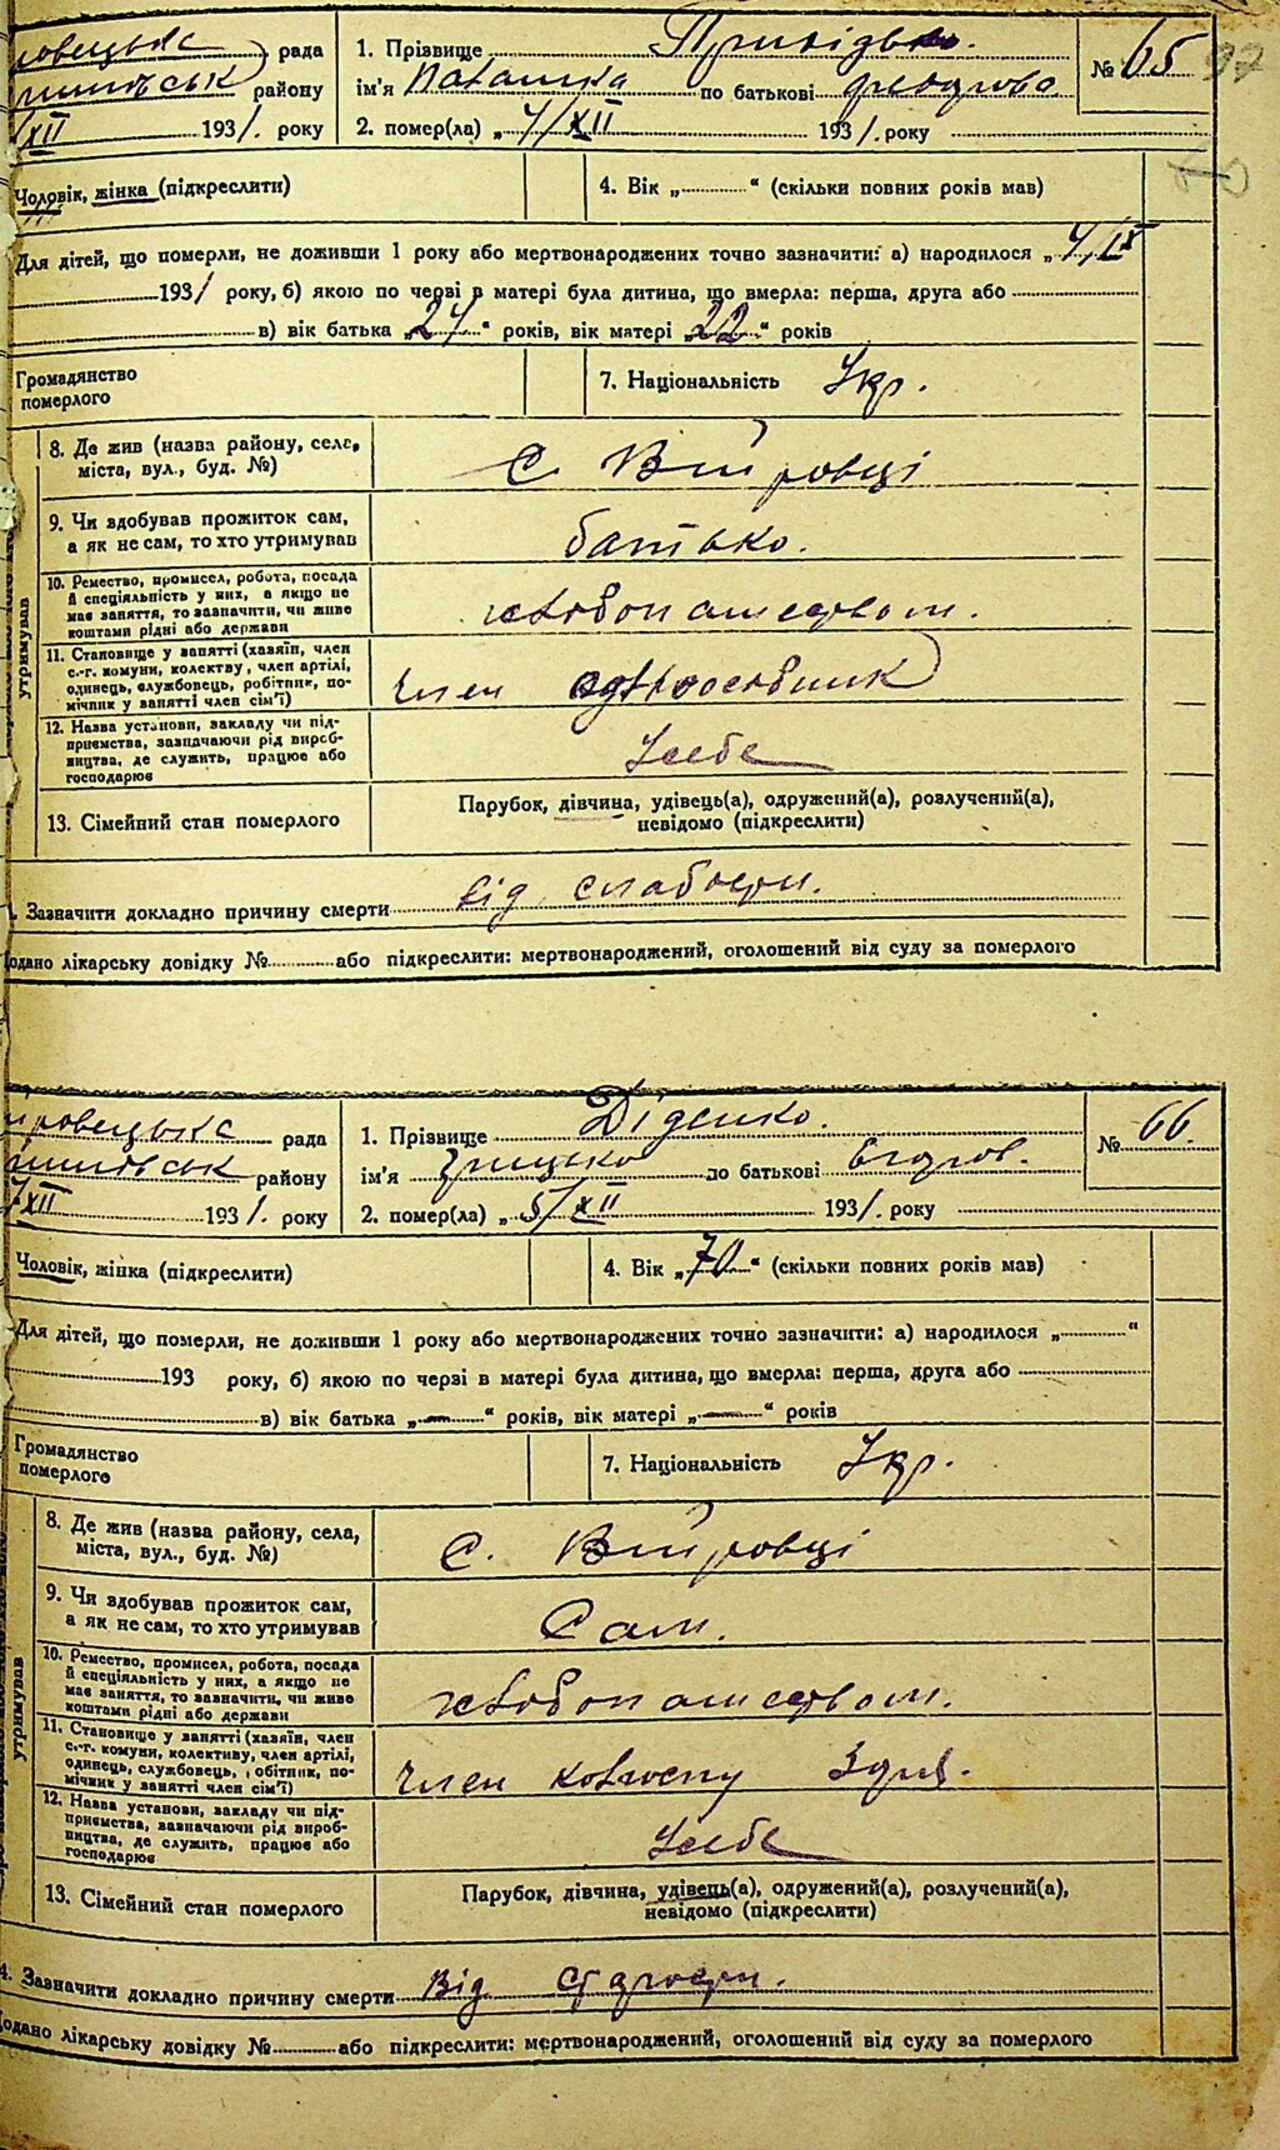 ровецька рада
району
XII 1931. року
1. Прізвище
№ 65 97
ім'я Наташка по батькові Федорова
2. помер(ла) „4/XII 1931. року
Чоловік, жінка (підкреслити)
4. Вік „ “ (скільки повних років мав)
Для дітей, що померли, не доживши 1 року або мертвонароджених точно зазначити: а) народилося „4/IX
1931 року, б) якою по черзі в матері була дитина, що вмерла: перша, друга або
в) вік батька „24“ років, вік матері „22“ років
Громадянство
померлого
7. Національність Укр.
8. Де жив (назва району, села,
міста, вул., буд. №)
С Війровці
9. Чи здобував прожиток сам,
а як не сам, то хто утримував
батько.
10. Ремество, промисел, робота, посада
й спеціяльність у них, а якщо не
має заняття, то зазначити, чи живе
коштами рідні або держави
хлібопашеством.
11. Становище у занятті (хазяїн, член
с.-г. комуни, колективу, член артілі,
одинець, службовець, робітник, по-
мічник у занятті член сім'ї)
член одноосібник
12. Назва установи, закладу чи під-
приємства, зазначаючи рід вироб-
ництва, де служить, працює або
господарює
У себе
утримував
13. Сімейний стан померлого
Парубок, дівчина, удівець(а), одружений(а), розлучений(а),
невідомо (підкреслити)
Зазначити докладно причину смерти від слабости.
одано лікарську довідку № або підкреслити: мертвонароджений, оголошений від суду за померлого
ировецька рада
району
7/XII 1931. року
1. Прізвище Діденко.
№ 66.
ім'я Грицько по батькові Федоров.
2. помер(ла) „5/XII 1931. року
Чоловік, жінка (підкреслити)
4. Вік „70“ (скільки повних років мав)
Для дітей, що померли, не доживши 1 року або мертвонароджених точно зазначити: а) народилося „ “
193 року, б) якою по черзі в матері була дитина, що вмерла: перша, друга або
в) вік батька „—“ років, вік матері „—“ років
Громадянство
померлого
7. Національність Укр.
8. Де жив (назва району, села,
міста, вул., буд. №)
С. Війровці
9. Чи здобував прожиток сам,
а як не сам, то хто утримував
Сам.
10. Ремество, промисел, робота, посада
й спеціяльність у них, а якщо не
має заняття, то зазначити, чи живе
коштами рідні або держави
хлібопашеством.
11. Становище у занятті (хазяїн, член
с.-г. комуни, колективу, член артілі,
одинець, службовець, робітник, по-
мічник у занятті член сім'ї)
член колгоспу
12. Назва установи, закладу чи під-
приємства, зазначаючи рід вироб-
ництва, де служить, працює або
господарює
У себе
утримував
13. Сімейний стан померлого
Парубок, дівчина, удівець(а), одружений(а), розлучений(а),
невідомо (підкреслити)
4. Зазначити докладно причину смерти Від старости.
одано лікарську довідку № або підкреслити: мертвонароджений, оголошений від суду за померлого